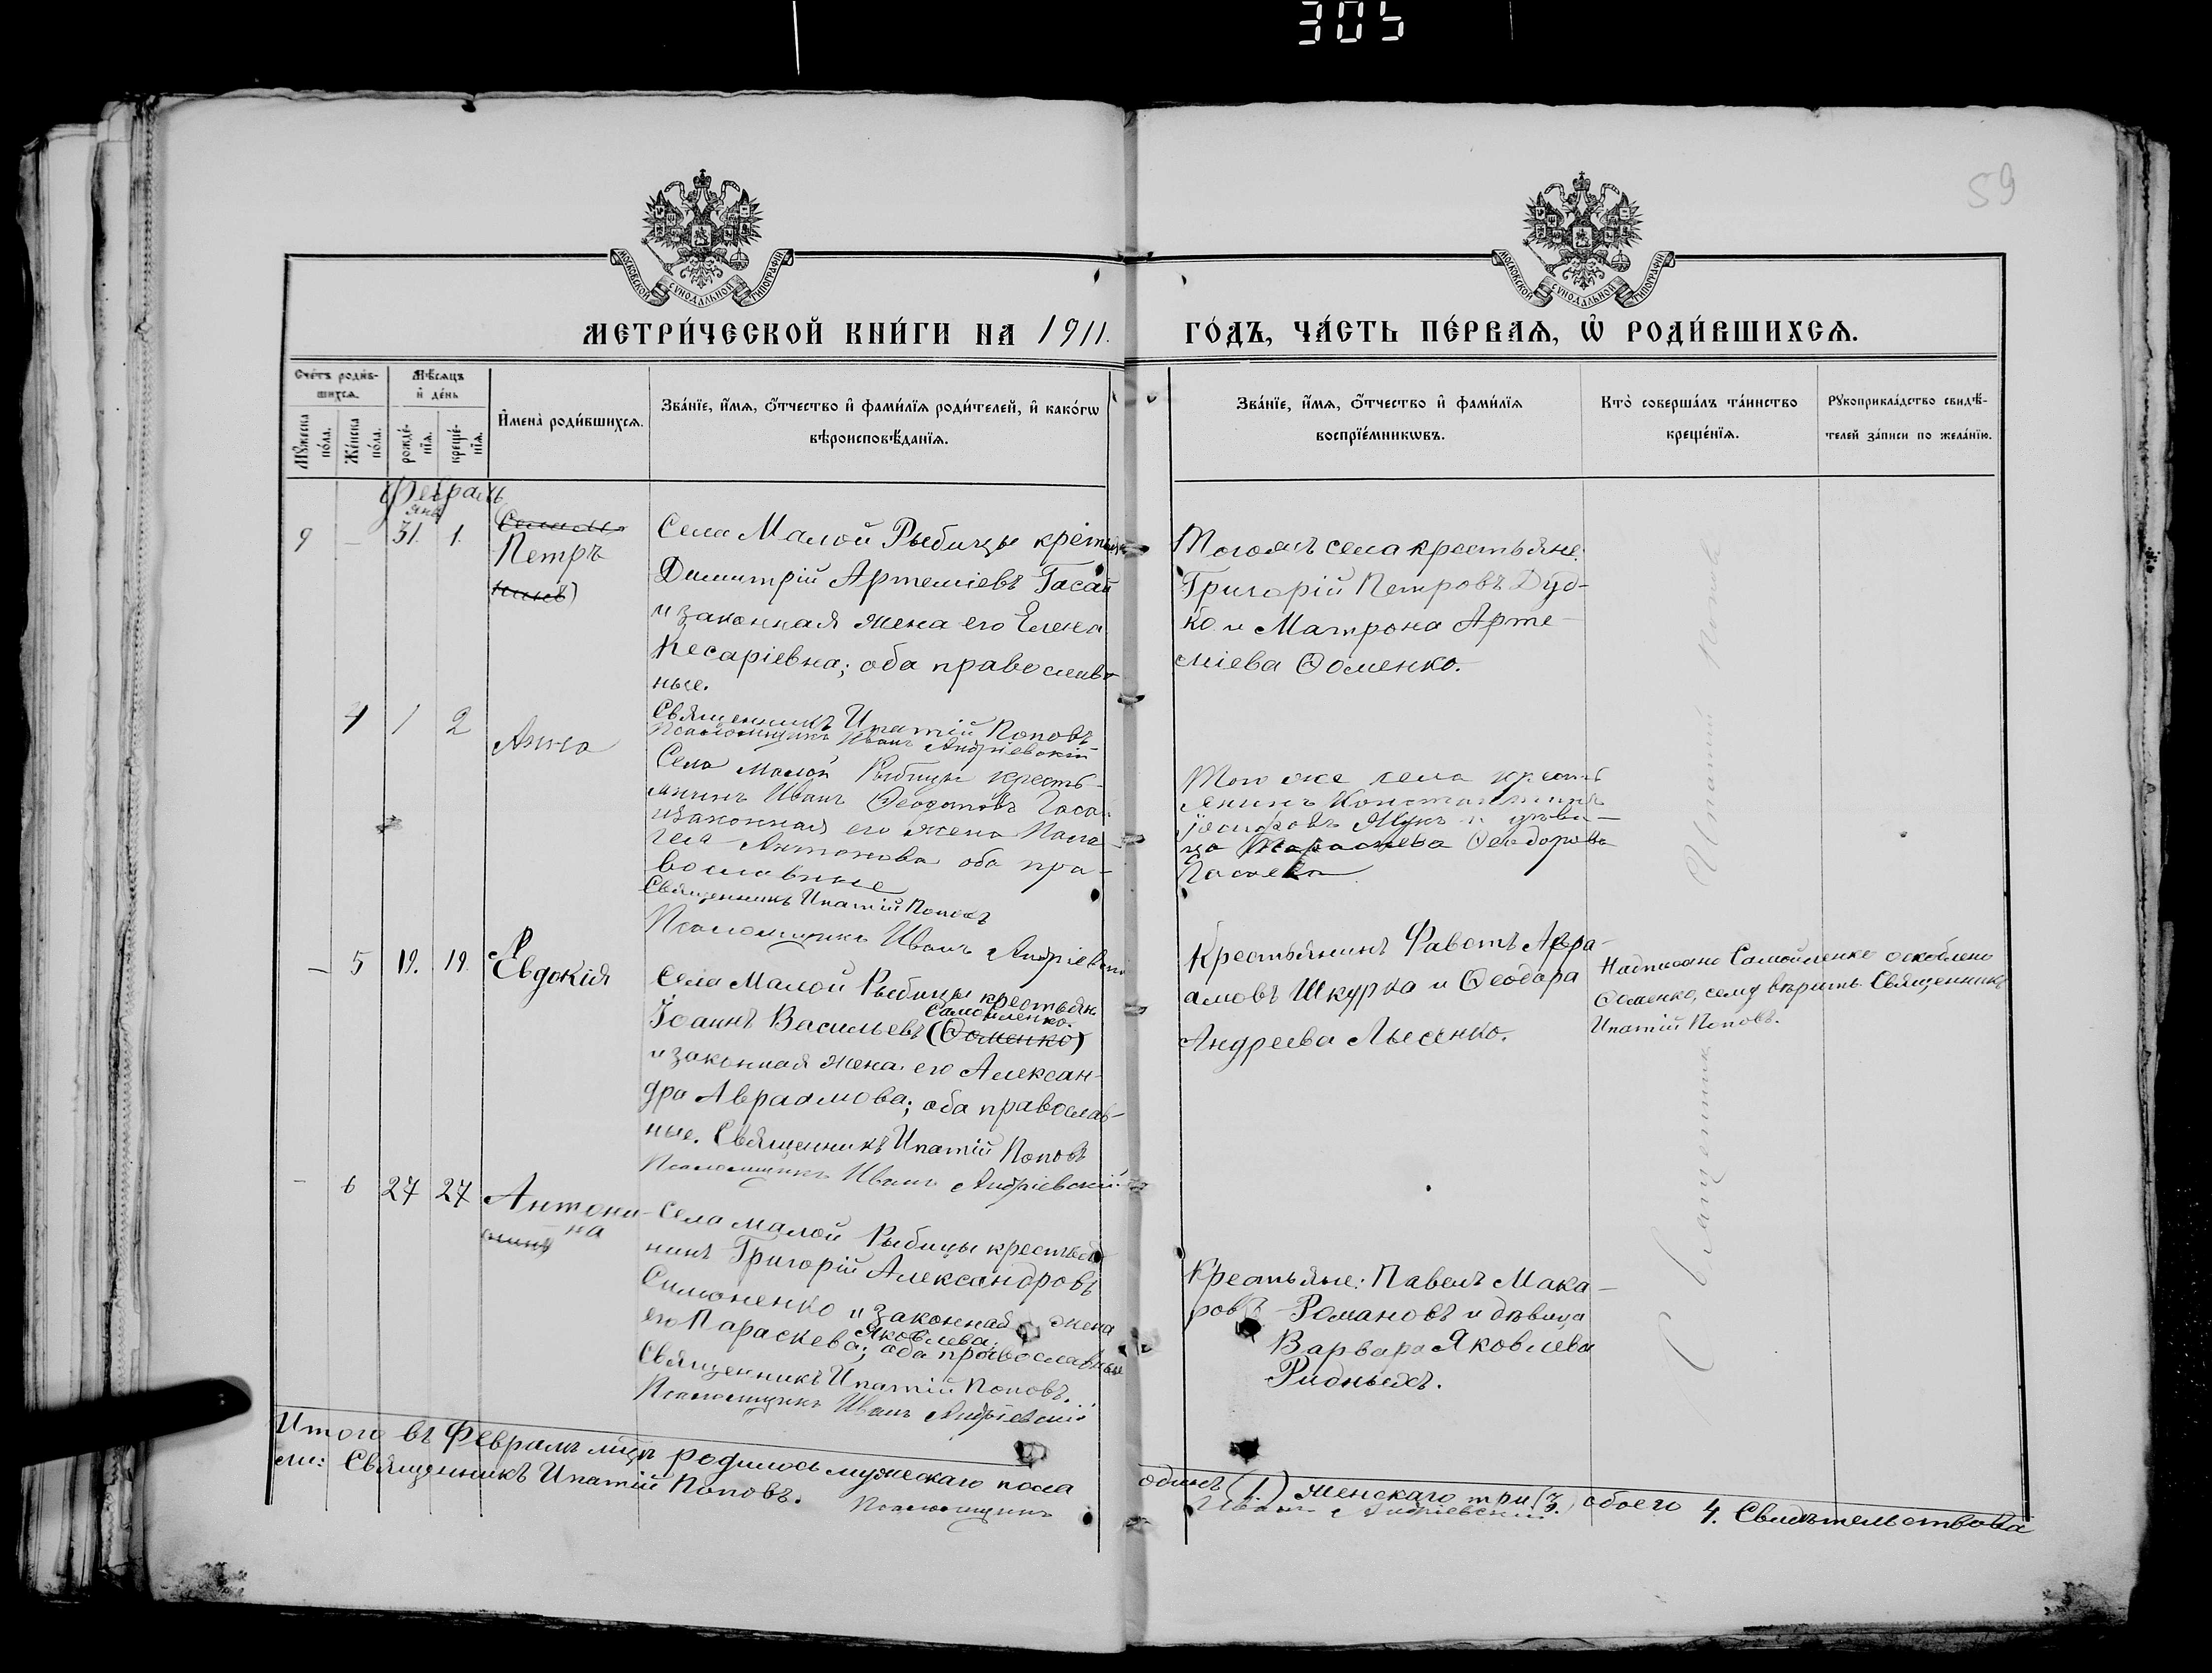 305
59
МОСКОВСКОЙ СѴНОДАЛЬНОЙ ТИПОГРАФІИ
МОСКОВСКОЙ СѴНОДАЛЬНОЙ ТИПОГРАФІИ
МЕТРИ́ЧЕСКОЙ КНИ́ГИ НА 1911. ГО́ДЪ, ЧА́СТЬ ПЕ́РВАѦ, Ѡ҆ РОДИ́ВШИХСѦ.
Сче́тъ роди́в-
шихсѧ.
Мꙋ́жеска по́ла.
Же́нска по́ла.
Мѣ́сѧцъ
и҆ де́нь
рожде́-
нїѧ.
креще́-
нїѧ.
И҆мена̀ роди́вшихсѧ.
Зва́нїе, и҆́мѧ, ѻ҆́тчество и҆ фами́лїѧ роди́телей, и҆ како́гѡ
вѣроисповѣ́данїѧ.
Зва́нїе, и҆́мѧ, ѻ҆́тчество и҆ фами́лїѧ
воспрїе́мникѡвъ.
Кто̀ соверша́лъ та́инство
креще́нїѧ.
Рꙋкоприкла́дство свидѣ́-
телей за́писи по жела́нїю.
Февраль
янв
9 - 31. 1.
Петръ
Села Малой Рыбицы
Димитрій Артеміевъ Гасай
и законная жена его Елена
Кесаріевна; оба православ-
ные.
Священникъ Ипатій Поповъ
Псаломщикъ Иванъ Андріевскій
Тогожъ села крестьяне:
Григорій Петровъ Дуд-
ко и Матрона Арте-
міева Ѳоменко.
4 1 2
Анна
Села Малой Рыбицы кресть-
янинъ Иванъ Ѳеодотовъ
и законная его жена
Антонова оба пра-
вославные
Священникъ Ипатій Поповъ
Псаломщикъ Иванъ Андріевскій
Того же села крест
янинъ Константинъ
Іосифовъ и дѣви-
ца Ѳеодорова
- 5 19. 19.
Евдокія
Села Малой Рыбицы крестьян
Самойленко.
Іоаннъ Васильевъ (Ѳоменко)
и законная жена его Алексан-
дра Авраамова; оба православ-
ные. Священникъ Ипатій Поповъ
Псаломщикъ Иванъ Андріевскій
Крестьянинъ Авра-
амовъ Шкурка и Ѳеодора
Андреева Лысенко.
Надписано Самойленко оскоблено
Ѳоменко, сему вѣрить. Священникъ
Ипатій Поповъ.
- 6 27 27
Антони-
на
Села Малой Рыбицы крестья
нинъ Григорій Александровъ
Симоненко и законная жена
Яковлева
его Параскева; оба православные
Священникъ Ипатій Поповъ.
Псаломщикъ Иванъ Андріевскій
Крестьяне: Павелъ Мака-
ровъ Романовъ и дѣвица
Варвара Яковлева
Ридныхъ.
Священникъ Ипатій Поповъ
Итого въ Февралѣ мцѣ родилось мужескаго пола одинъ (1) женскаго три (3) обоего 4. Свидѣтельствова
ли: Священникъ Ипатій Поповъ. Псаломщикъ Иванъ Андріевскій